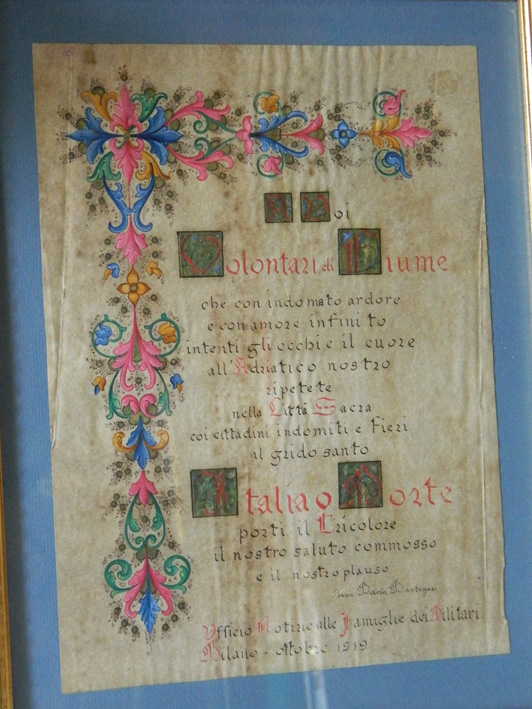 A Voi
Volontari di Fiume
che con indomato ardore
e con amore infinito
intenti gli occhi e il cuore
all'Adriatico nostro
ripetete
nella Città Sacra
coi cittadini indomiti e fieri
il grido santo
Italia o Morte
porti il Tricolore
il nostro saluto commosso
e il nostro plauso
Ufficio Notizie alle Famiglie dei Militari
Milano - ottobre 1919